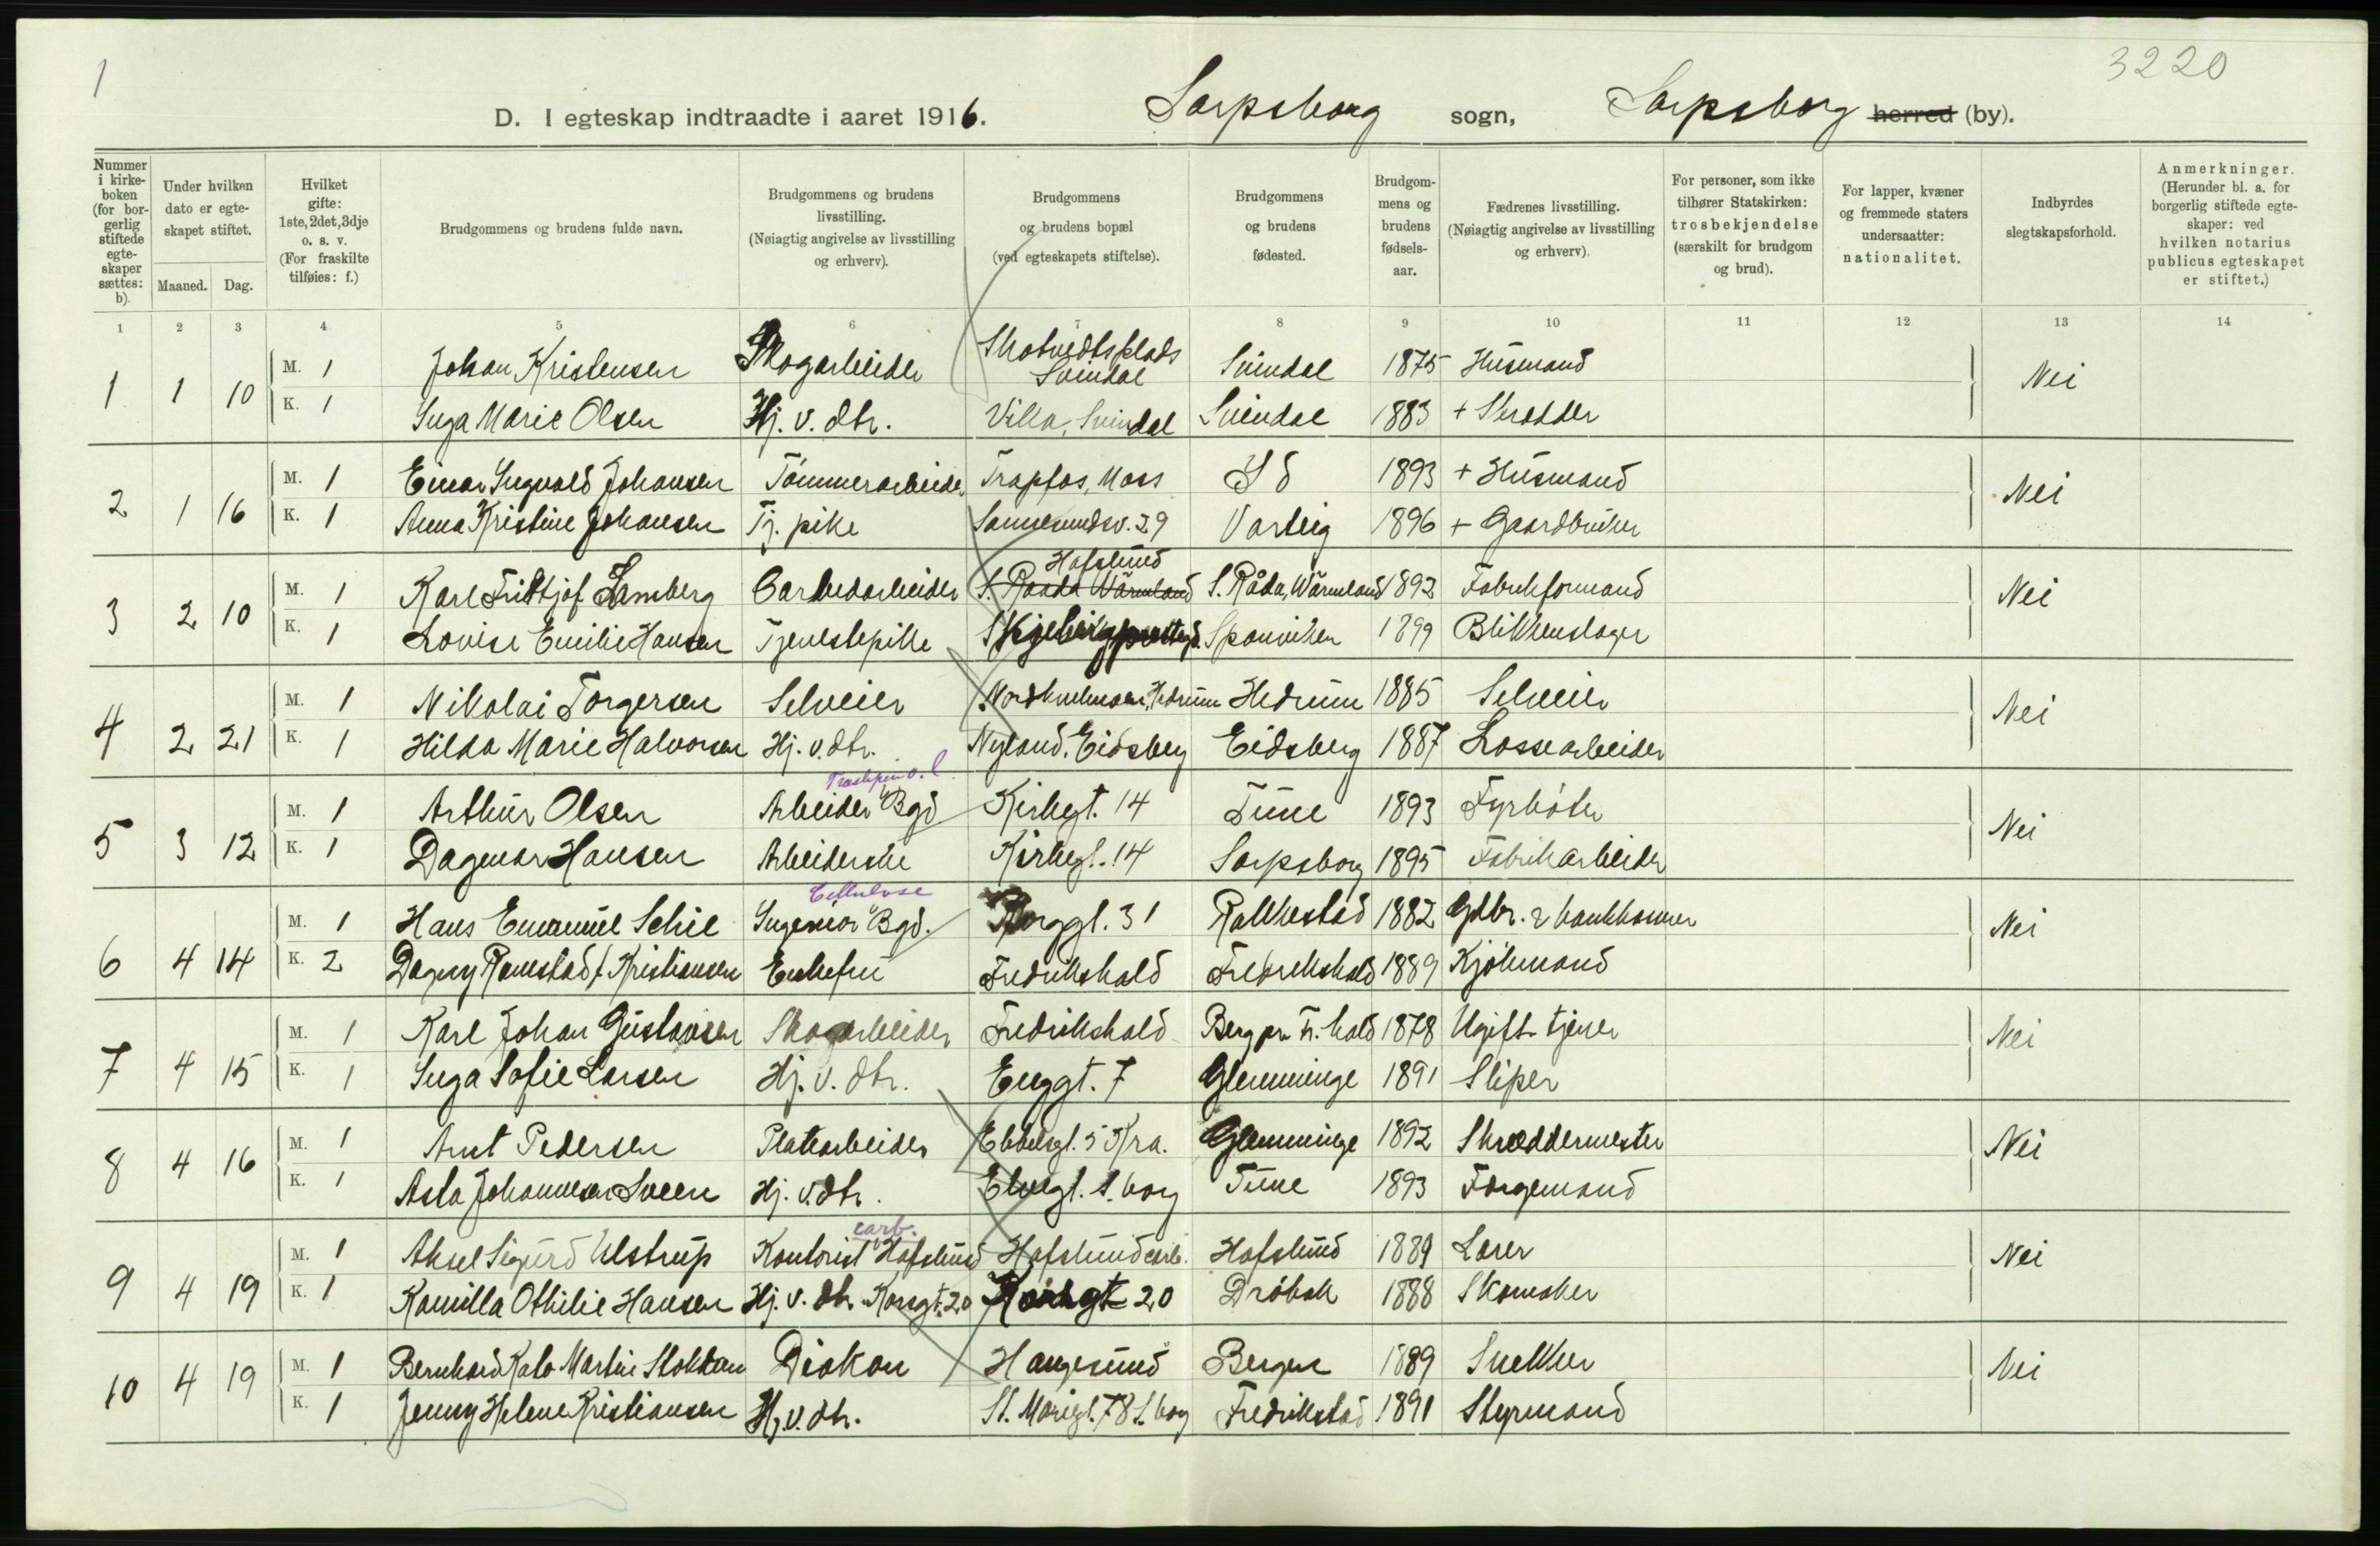 1
3220
D. I egteskap indtraadte i aaret 1916. Sarpsborg sogn, Sarpsborg herred (by).
Nummer i kirkeboken (for borgerlig stiftede egteskaper sættes: b).
Under hvilken dato er egteskapet stiftet.
Maaned. Dag.
Hvilket gifte: 1ste, 2det, 3dje o. s. v. (For fraskilte tilføies: f.)
Brudgommens og brudens fulde navn.
Brudgommens og brudens livsstilling. (Nøiagtig angivelse av livsstilling og erhverv).
Brudgommens og brudens bopæl (ved egteskapets stiftelse).
Brudgommens og brudens fødested.
Brudgommens og brudens fødselsaar.
Fædrenes livsstilling. (Nøiagtig angivelse av livsstilling og erhverv).
For personer, som ikke tilhører Statskirken: trosbekjendelse (særskilt for brudgom og brud).
For lapper, kvæner og fremmede staters undersaatter: nationalitet.
Indbyrdes slegtskapsforhold.
Anmerkninger. (Herunder bl. a. for borgerlig stiftede egteskaper: ved hvilken notarius publicus egteskapet er stiftet.)
1 2 3 4 5 6 7 8 9 10 11 12 13 14
1 1 10 M. 1 Johan Kristensen Skogarbeider Skotvedtsplads Svindal Svindal 1875 Husmand Nei
K. 1 Inga Marie Olsen Hj. v. dtr. Villa, Svindal Svindal 1883 + Skrædder
2 1 16 M. 1 Einar Ingvald Johansen Tømmerarbeider Trapfos, Moss Id 1893 + Husmand Nei
K. 1 Anna Kristine Johansen Tj. pike Sannesundsv. 29 Varteig 1896 + Gaardbruker
3 2 10 M. 1 Karl Fridtjof Lamberg Carbidarbeider Hafslund S. Raada Wärmland S. Råda, Wärmland 1892 Fabrikformand Nei
K. 1 Lovise Emilie Hansen Tjenestepike Skjebergprestegd. Sponviken 1899 Blikkenslager
4 2 21 M. 1 Nikolai Torgersen Selveier Hedrum Hedrum 1885 Selveier Nei
K. 1 Hilda Marie Halvorsen Hj. v. dtr. Nyland, Eidsberg Eidsberg 1887 Lossearbeider
5 3 12 M. 1 Arthur Olsen Arbeider Bgd Kirkegt. 14 Tune 1893 Fyrbøter Nei
K. 1 Dagmar Hansen Arbeiderske Kirkegt. 14 Sarpsborg 1895 Fabrikarbeider
6 4 14 M. 1 Hans Emanuel Schie Ingeniør Cellulose Bgd. Borggt. 31 Rakkestad 1882 Gdbr. & bankkasserer Nei
K. 2 Dagny Ramstad f. Kristiansen Enkefru Fredrikshald Fredrikshald 1889 Kjøbmand
7 4 15 M. 1 Karl Johan Gustavsen Skogarbeider Fredrikshald Berg pr. Fr. hald 1878 Ugift tjener Nei
K. 1 Inga Sofie Larsen Hj. v. dtr. Enggt. 7 Glemminge 1891 Sliper
8 4 16 M. 1 Arnt Pedersen Platearbeider Ebbelsgt. 5 Kra. Glemminge 1892 Skræddermester Nei
K. 1 Asta Johannesen Sveen Hj. v. dtr. Elvegt. S.borg Tune 1893 Færgemand
9 4 19 M. 1 Aksel Sigurd Ulstrup Kontorist carb. Hafslund Hafslund carb. Hafslund 1889 Lærer Nei
K. 1 Kamilla Othilie Hansen Hj. v. dtr. Korsgt. 20 Korsgt 20 Drøbak 1888 Skomaker
10 4 19 M. 1 Bernhard Kato Martin Stokkan Diakon Haugesund Bergen 1889 Snekker Nei
K. 1 Jenny Helene Kristiansen Hj. v. dtr. St. Mariegt. 78 S.borg Fredrikstad 1891 Styrmand